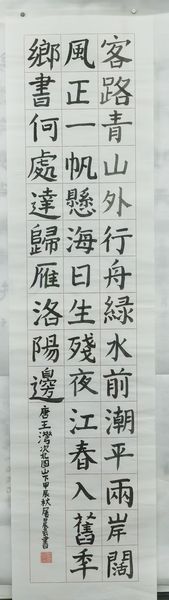 客路青山外行舟緑水前潮平兩岸闊
風正一帆懸海日生殘夜江春入舊季
鄉書何處達歸雁洛陽邊
唐王灣次北固山下甲辰秋